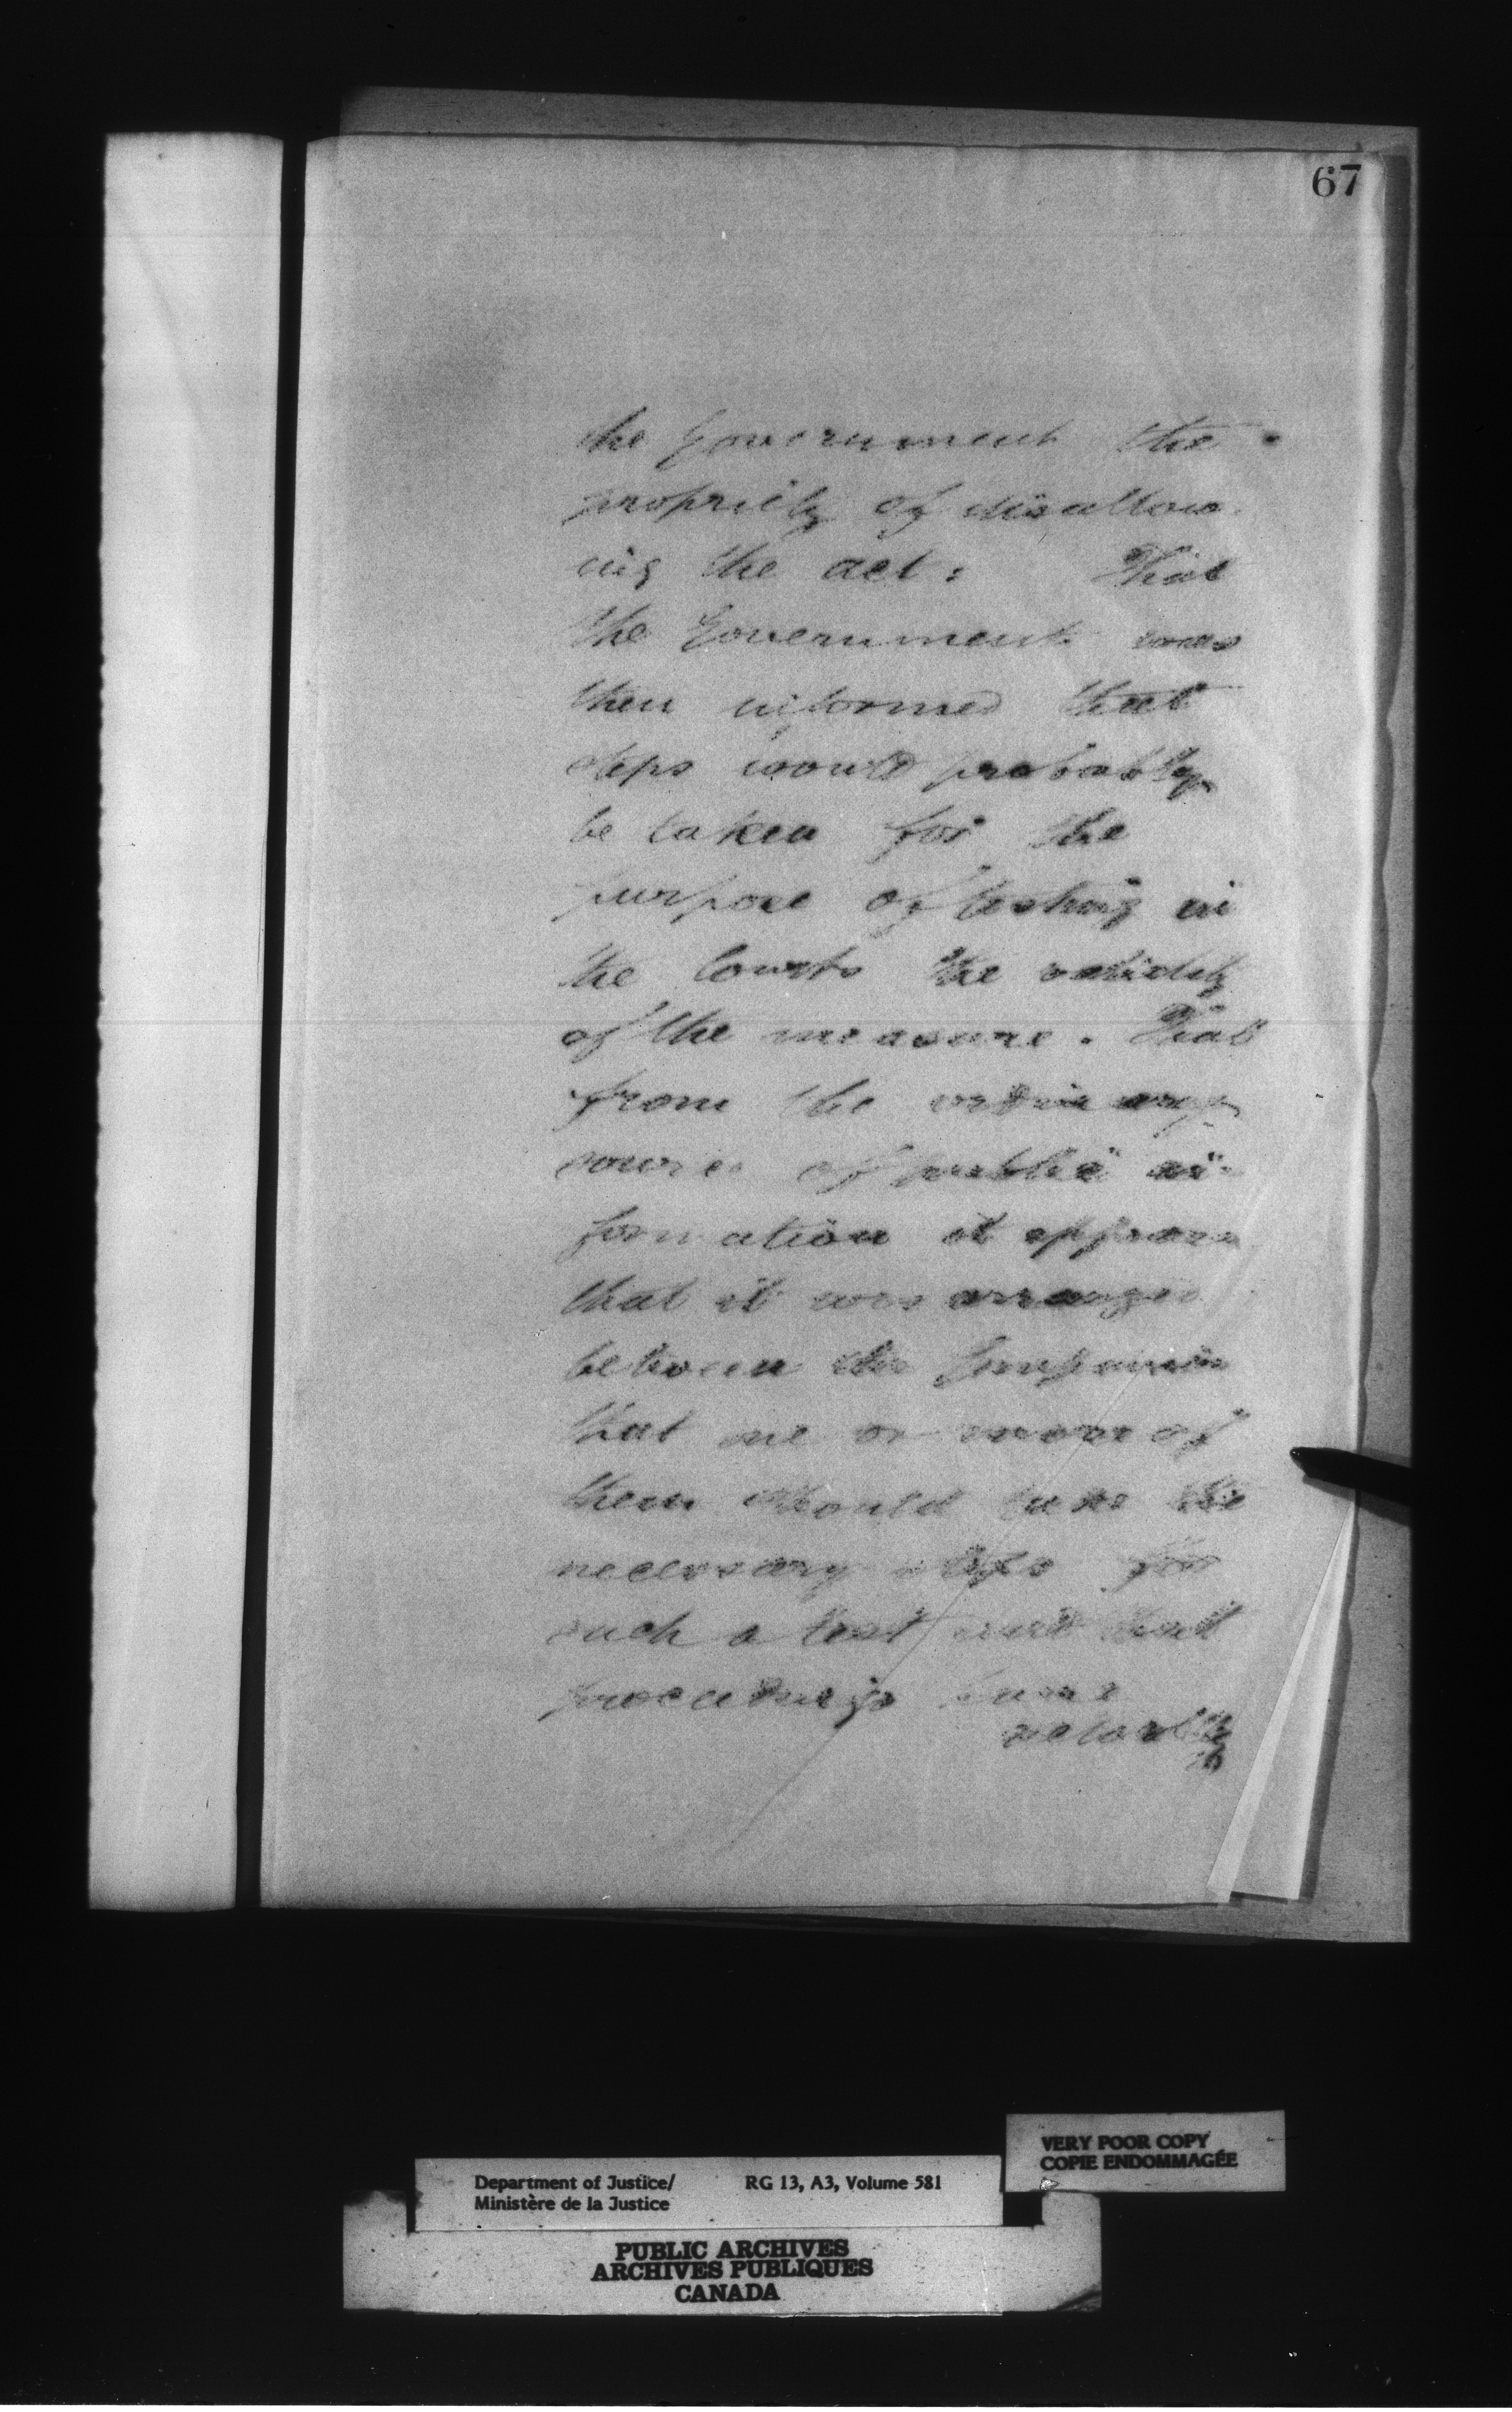 67
the Government the
propriety of disallow
ing the act: That
the Government was
then informed that
steps would probably
be taken for the
purpose of testing in
the Courts the validity
of the measure. That
from the ordinary
sources of public in-
formation it appears
that it was arranged
between the Companies
that one or more of
them should take the
necessary steps for
such a test and that
proceedings have
actually
VERY POOR COPY
COPIE ENDOMMAGÉE
Department of Justice/ RG 13, A3, Volume 581
Ministère de la Justice
PUBLIC ARCHIVES
ARCHIVES PUBLIQUES
CANADA